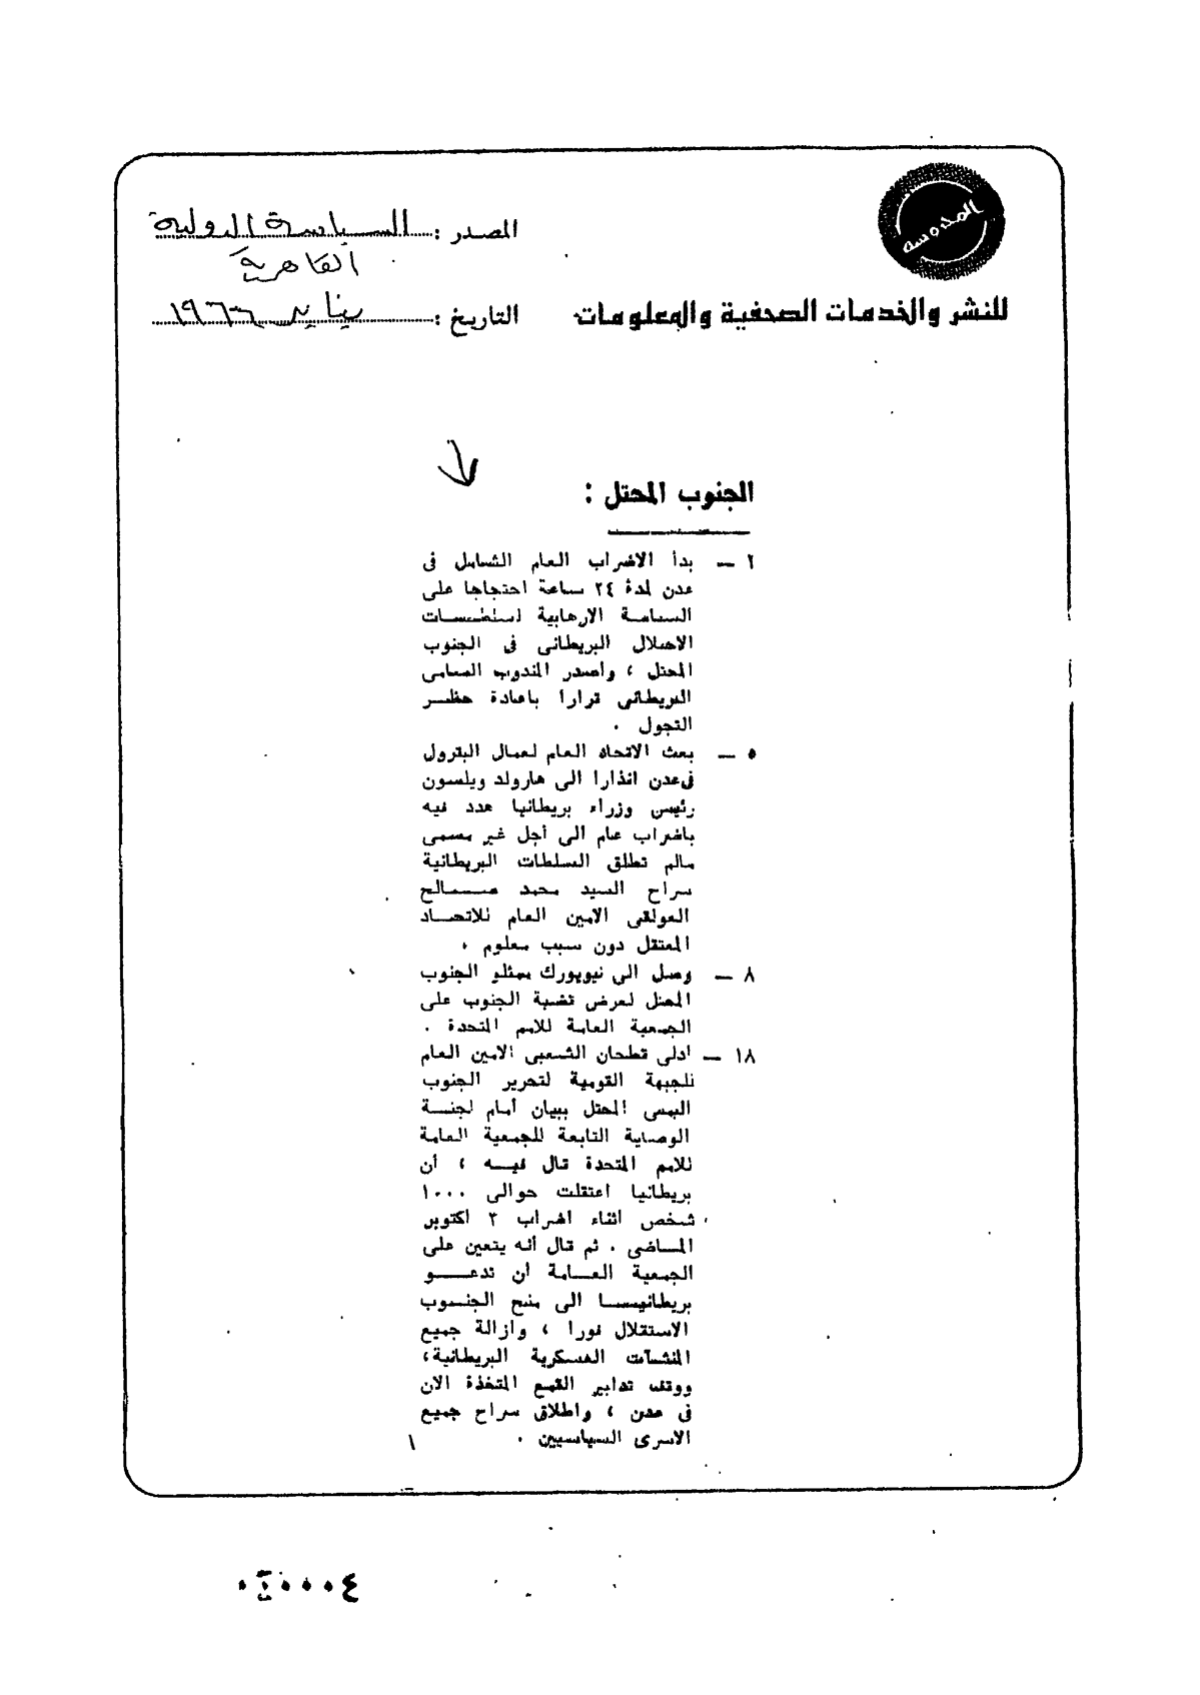 المحروسة
للنشر والخدمات الصحفية والمعلومات
المصدر : السياسة الدولية
القاهرية
التاريخ : يناير ١٩٦٦
الجنوب المحتل :
٢ — بدأ الاضراب العام الشامل فى
عدن لمدة ٢٤ ساعة احتجاجا على
السياسة الارهابية لسلطات
الاحتلال البريطانى فى الجنوب
المحتل ، وأصدر المندوب السامى
البريطانى قرارا باعادة حظر
التجول .
٥ — بعث الاتحاد العام لعمال البترول
فى عدن انذارا الى هارولد ويلسون
رئيس وزراء بريطانيا هدد فيه
باضراب عام الى أجل غير مسمى
مالم تطلق السلطات البريطانية
سراح السيد محمد صالح
العولقى الامين العام للاتحاد
المعتقل دون سبب معلوم .
٨ — وصل الى نيويورك ممثلو الجنوب
المحتل لعرض قضية الجنوب على
الجمعية العامة للامم المتحدة .
١٨ — ادلى قحطان الشعبى الامين العام
للجبهة القومية لتحرير الجنوب
اليمنى المحتل ببيان أمام لجنة
الوصاية التابعة للجمعية العامة
للامم المتحدة قال فيه ، أن
بريطانيا اعتقلت حوالى ١٠٠٠
شخص اثناء اضراب ٢ اكتوبر
الماضى . ثم قال أنه يتعين على
الجمعية العامة أن تدعو
بريطانيا الى منح الجنوب
الاستقلال فورا ، وازالة جميع
المنشآت العسكرية البريطانية،
ووقف تدابير القمع المتخذة الان
فى عدن ، واطلاق سراح جميع
الاسرى السياسيين .